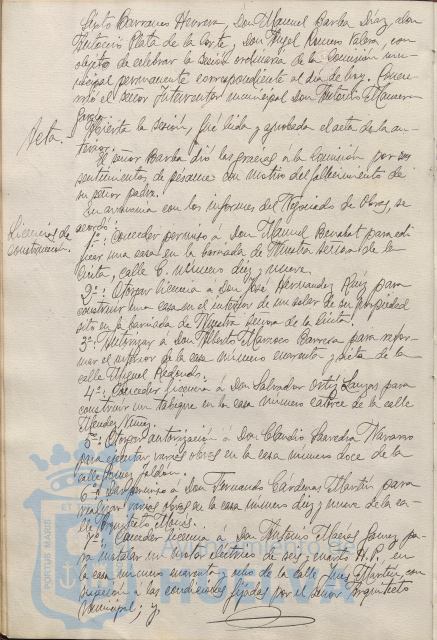 Sixto Barranco Herrera, Don Manuel Barba Díaz, don
Antonio Plata de la Corte, Don Angel Romero Valera, con
objeto de celebrar la sesión ordinaria de la Comisión mu-
nicipal permanente correspondiente al día de hoy. Concu-
rrió el señor Interventor municipal Don Antonio
García.
Acta.
Abierta la sesión, fué leida y aprobada el acta de la an-
terior.
El señor Barba dió las gracias á la Comisión por sus
sentimientos de pésame con motivo del fallecimiento de
su señor padre.
Licencias de
construcción.
En armonía con los informes del Negociado de Obras, se
acordó:
1º: Conceder permiso á Don Manuel para edi-
ficar una casa en la barriada de Nuestra Señora de la
Cinta, calle C. número diez y nueve.
2º: Otorgar licencia a Don José Hernandez Ruiz para
construir una casa en el interior de un solar de su propiedad
sito en la barriada de Nuestra Señora de la Cinta.
3º: Autorizar á Don Alberto Marroco Barrera para refor-
mar el interior de la casa número cuarenta y siete de la
calle Miguel Redondo.
4º: Conceder licencia á Don Salvador Ortiz para
construir un tabique en la casa número catorce de la calle
Mendez Nuñez.
5º: Otorgar autorización á Don Claudio Saavedra Navarro
para ejecutar varias obras en la casa número doce de la
calle
6º: Dar permiso á Don Fernando Cárdenas Martín para
realizar varias obras de la casa número diez y nueve de la ca-
lle Arquitecto
7º: Conceder licencia á Don Antonio Macias pa-
ra instalar un motor eléctrico de seis y cuarto H.P. en
la casa número cuarenta y ocho de la calle con
sujeción a las condiciones fijadas por el señor Arquitecto
Municipal; y
PORTUS MARIS
ET
Ayuntamiento de
HUELVA